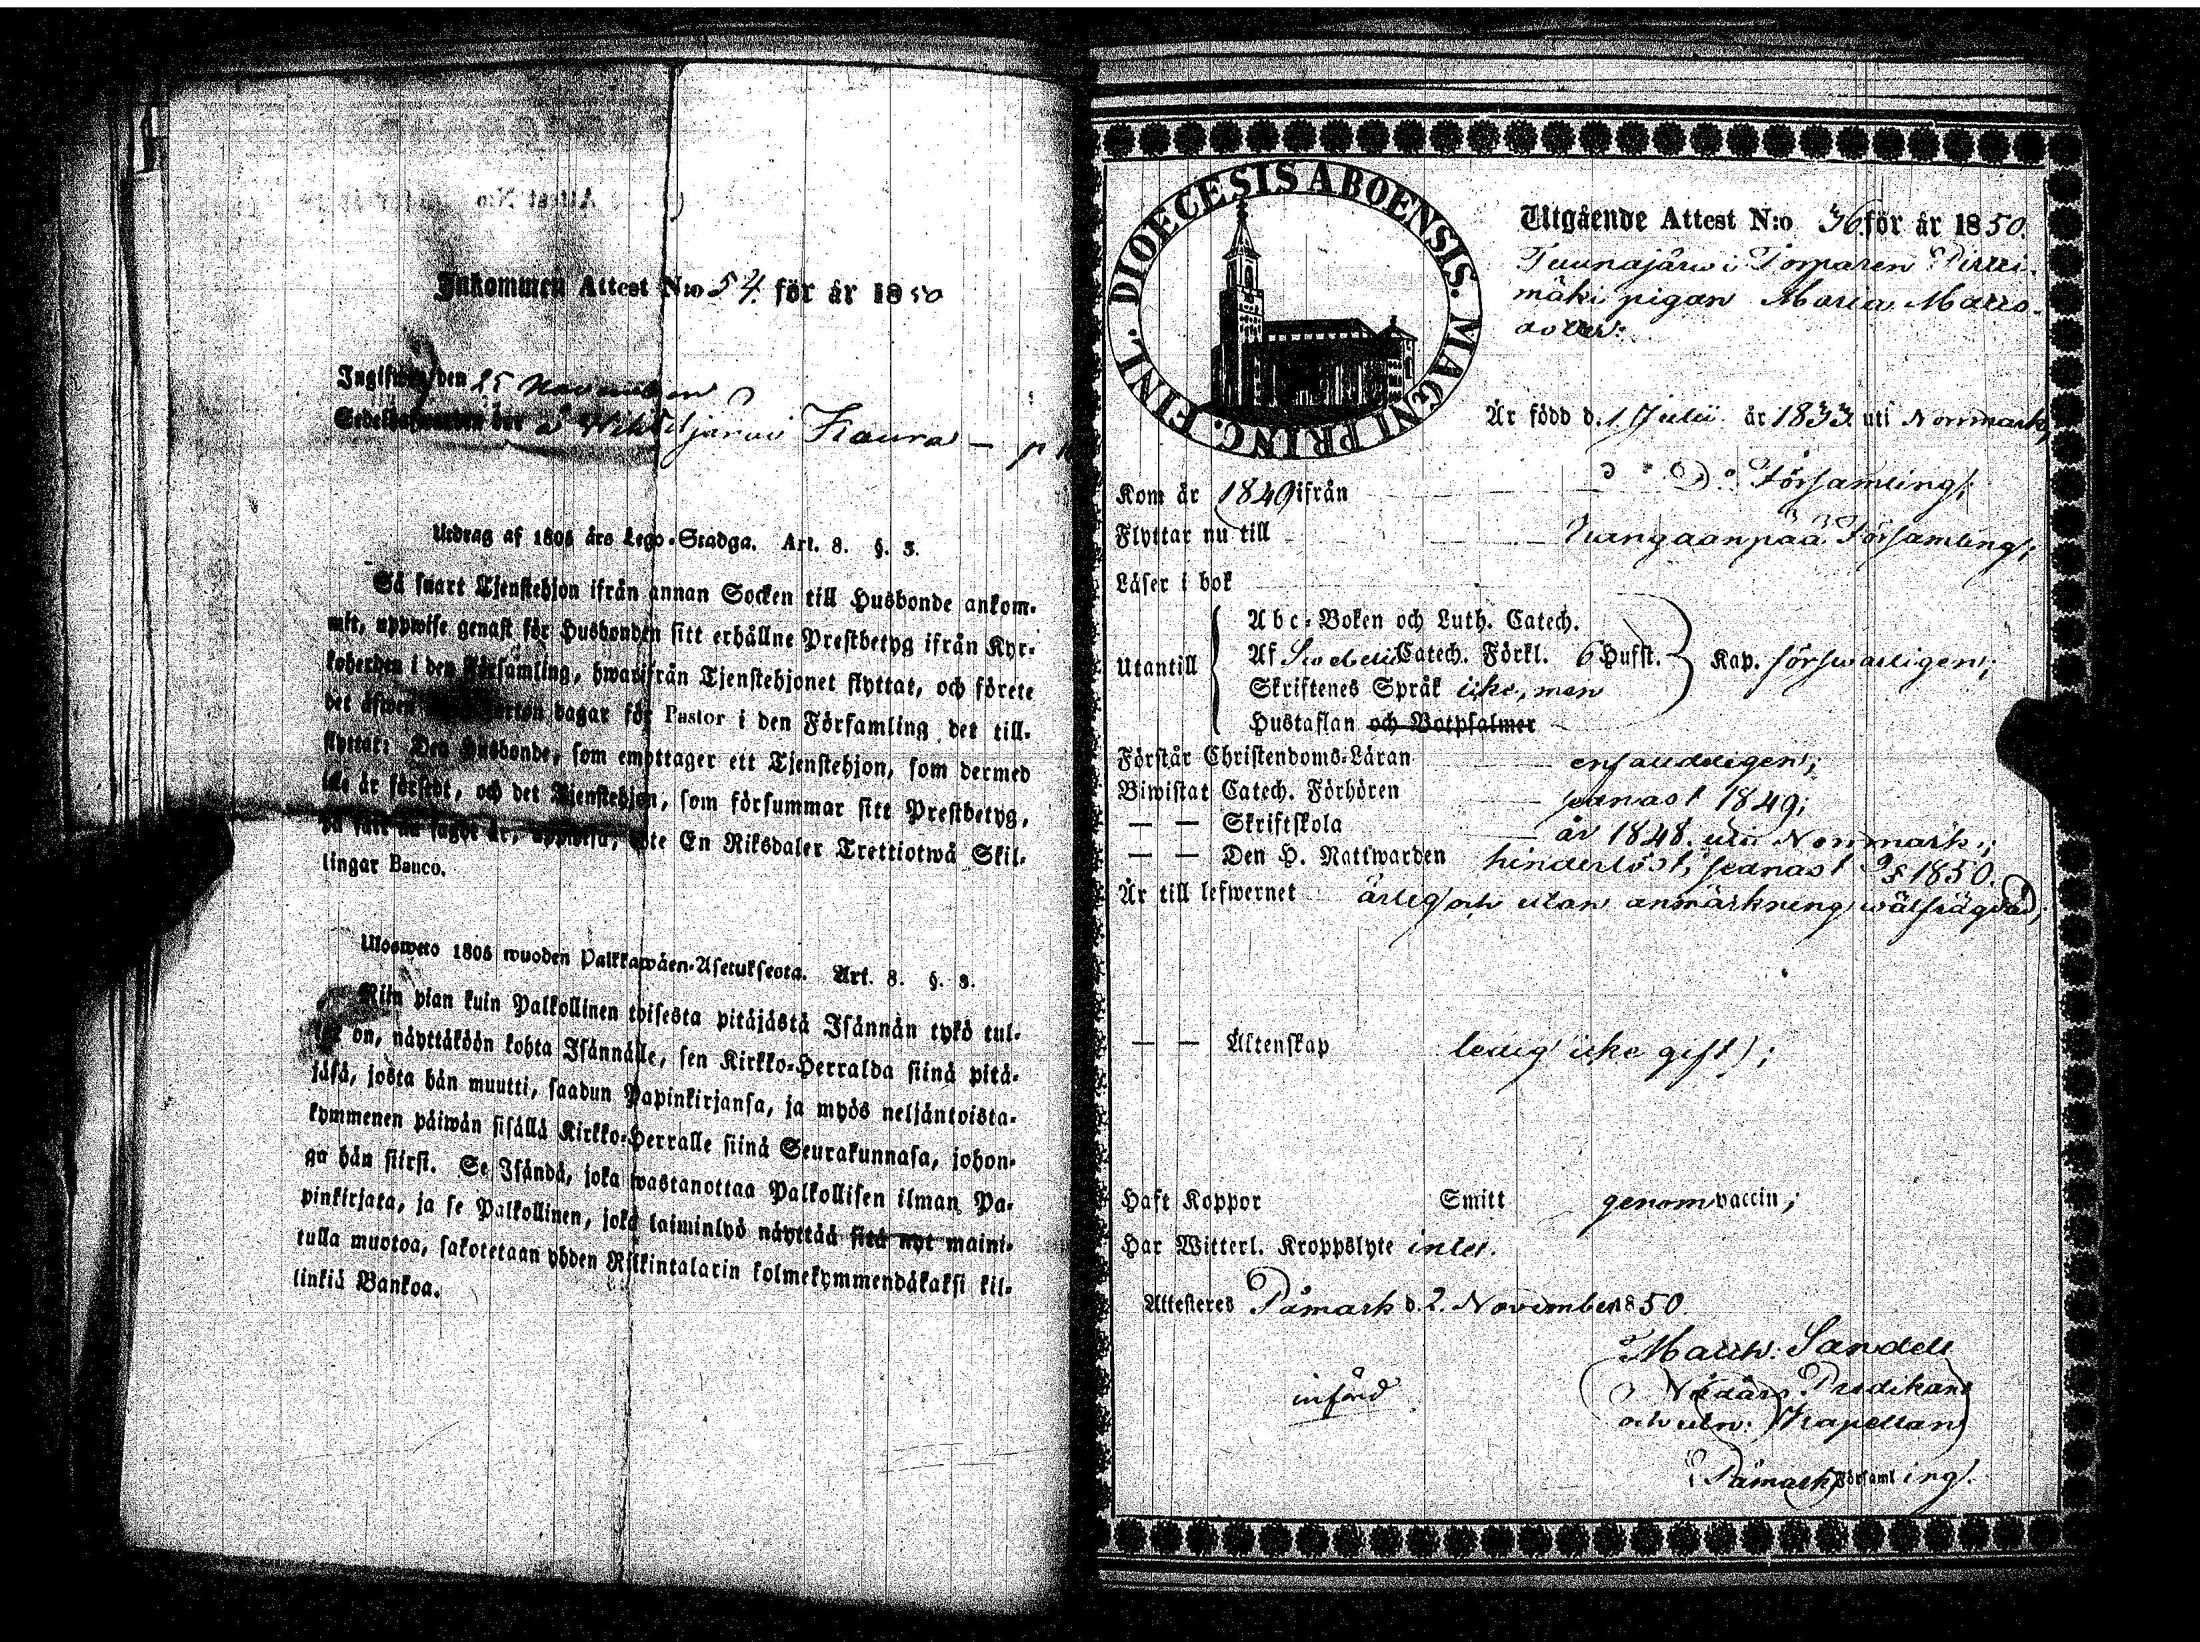 Inkommen Attest N:o 54 för år 1850
den 25 November
Utdrag af 1805 års Lego-Stadga. Art. 8. §. 3.
Så snart Tjenstehjon ifrån annan Socken till Husbonde ankom-
mit, uppwise genast för Husbonden sitt erhållne Prestbetyg ifrån Kyr-
koherden i den Församling, hwarifrån Tjenstehjonet flyttat, och förete
det äfwen dagar för Pastor i den Församling det till-
flyttat: Den Husbonde, som emottager ett Tjenstehjon, som dermed
icke är försedt, och det Tjenstehjon, som försummar sitt Prestbetyg,
på sätt nu sagdt är, uppwisa, böte En Riksdaler Trettiotwå Skil-
lingar Banco.
Ulosweto 1805 wuoden Palkkawäen-Asetuksesta. Art. 8. §. 3.
Niin pian kuin Palkollinen toisesta pitäjästä Isännän tykö tul-
lut on, näyttäköön kohta Isännälle, sen Kirkko-Herralda siinä pitä-
jäsä, josta hän muutti, saadun Papinkirjansa, ja myös neljäntoista-
kymmenen päiwän sisällä Kirkko-Herralle siinä Seurakunnasa, johon-
ga hän siirsi. Se Isändä, joka wastanottaa Palkollisen ilman Pa-
pinkirjata, ja se Palkollinen, joka laiminlyö näyttää sitä nyt maini-
tulla muotoa, sakotetaan yhden Riikintalarin kolmekymmendäkaksi kil-
linkiä Bankoa.
DIOECESIS ABOENSIS. MAGNI PRINC. FINL.
Utgående Attest N:o 36 för år 1850.
Torparen
mäki pigan Maria
Är född d. 1 Julii år 1833 uti Norrmark,
Kom år 1849 ifrån Församling;
Flyttar nu till Kangaanpää Församling;
Läser i bok
Abc-Boken och Luth. Catech.
Utantill Af Swebelii Catech. Förkl. 6 Hufst. Kap. försvarligen;
Skriftenes Språk icke, men
Hustaflan och Botpsalmer
Förstår Christendoms-Läran enfaldeligen;
Biwistat Catech. Förhören senast 1849;
— — Skriftskola år 1848 uti Norrmark;
— — Den H. Nattwarden hinderlöst, senast 1850.
Är till lefwernet ärlig och utan anmärkning wälfrägdad;
— — Äktenskap ledig (icke gift);
Haft Koppor Smitt genom vaccin;
Har Witterl. Kroppslyte intet.
Attesteras Påmark d. 2. November 1850.
Matth: Sandell
Predikant
och Kapellan
införd
Påmark Församling.